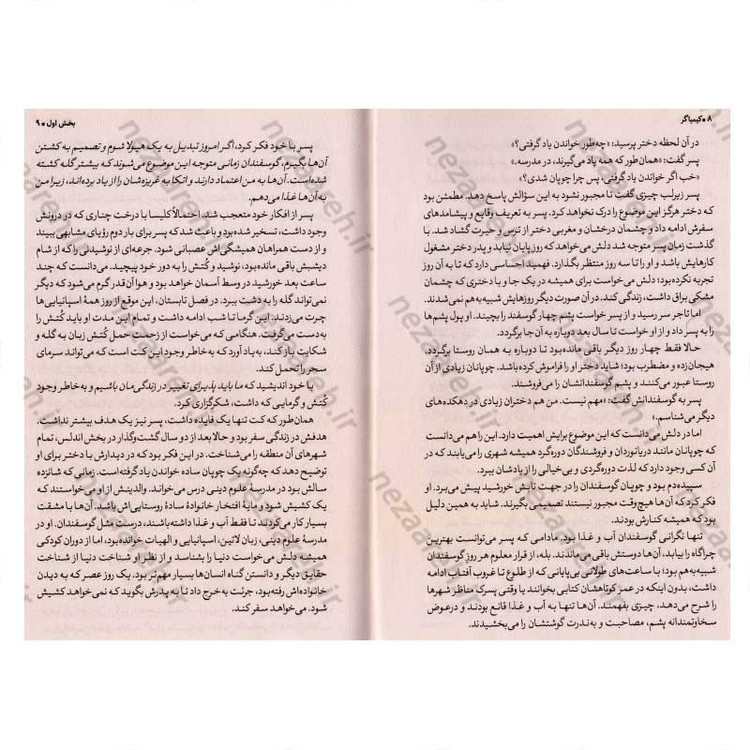 ۸ ● کیمیاگر
در آن لحظه دختر پرسید: «چه‌طور خواندن یاد گرفتی؟»
پسر گفت: «همان‌طور که همه یاد می‌گیرند، در مدرسه.»
«خب اگر خواندن یاد گرفتی، پس چرا چوپان شدی؟»
پسر زیرلب چیزی گفت تا مجبور نشود به این سؤالش پاسخ دهد. مطمئن بود
که دختر هرگز این موضوع را درک نخواهد کرد. پسر به تعریف وقایع و پیشامدهای
سفرش ادامه داد و چشمان درخشان و مغربی دختر از ترس و حیرت گشاد شد. با
گذشت زمان پسر متوجه شد دلش می‌خواهد که روز پایان نیابد و پدر دختر مشغول
کارهایش باشد و او را تا سه روز منتظر بگذارد. فهمید احساسی دارد که تا به آن روز
تجربه نکرده‌بود؛ دلش می‌خواست برای همیشه در یک جا و با دختری که چشمان
مشکی براق داشت، زندگی کند. در آن صورت دیگر روزهایش شبیه به‌هم نمی‌شدند.
اما تاجر سر رسید و از پسر خواست پشم چهار گوسفند را بچیند. او پول پشم‌ها
را به پسر داد و از او خواست تا سال بعد دوباره به آن‌جا برگردد.
حالا فقط چهار روز دیگر باقی مانده‌بود تا دوباره به همان روستا برگردد.
هیجان‌زده و مضطرب بود؛ شاید دختر او را فراموش کرده‌باشد. چوپانان زیادی از آن
روستا عبور می‌کنند و پشم گوسفندانشان را می‌فروشند.
پسر به گوسفندانش گفت: «مهم نیست. من هم دختران زیادی در دهکده‌های
دیگر می‌شناسم.»
اما در دلش می‌دانست که این موضوع برایش اهمیت دارد. این را هم می‌دانست
که چوپانان مانند دریانوردان و فروشندگان دوره‌گرد همیشه شهری را می‌یابند که در
آن کسی وجود دارد که لذت دوره‌گردی و بی‌خیالی را از یادشان ببرد.
سپیده‌دم بود و چوپان گوسفندان را در جهت تابش خورشید پیش می‌برد. او
فکر کرد که آن‌ها هیچ‌وقت مجبور نیستند تصمیمی بگیرند. شاید به همین دلیل
بود که همیشه کنارش بودند.
تنها نگرانی گوسفندان آب و غذا بود. مادامی که پسر می‌توانست بهترین
چراگاه را بیابد، آن‌ها دوستش باقی می‌ماندند. بله، از قرار معلوم هر روز گوسفندان
شبیه به‌هم بود؛ با ساعت‌های طولانی بی‌پایانی که از طلوع تا غروب آفتاب ادامه
داشت، بدون اینکه در عمر کوتاهشان کتابی بخوانند یا وقتی پسرک مناظر شهرها
را شرح می‌دهد، چیزی بفهمند. آن‌ها تنها به آب و غذا قانع بودند و درعوض
سخاوتمندانه پشم، مصاحبت و به‌ندرت گوشتشان را می‌بخشیدند.
بخش اول ● ۹
پسر با خود فکر کرد، اگر امروز تبدیل به یک هیولا شوم و تصمیم به کشتن
آن‌ها بگیرم، گوسفندان زمانی متوجه این موضوع می‌شوند که بیشتر گله کشته
شده‌است. آن‌ها به من اعتماد دارند و اتکا به غریزه‌شان را از یاد برده‌اند، زیرا من به
آن‌ها غذا می‌دهم.
پسر از افکار خود متعجب شد. احتمالاً کلیسا با درخت چناری که در درونش
وجود داشت، تسخیر شده‌بود و باعث شد که پسر برای بار دوم رؤیای مشابهی ببیند
و از دست همراهان همیشگی‌اش عصبانی شود. جرعه‌ای از نوشیدنی را که از شام
دیشبش باقی مانده‌بود، نوشید و کُتش را به دور خود پیچید. می‌دانست که چند
ساعت بعد خورشید در وسط آسمان خواهد بود و هوا آن‌قدر گرم می‌شود که دیگر
نمی‌تواند گله را به دشت ببرد. در فصل تابستان، این موقع از روز همهٔ اسپانیایی‌ها
چرت می‌زدند. این گرما تا شب ادامه داشت و تمام این مدت او باید کُتش را
به‌دست می‌گرفت. هنگامی که می‌خواست از زحمت حمل کُتش زبان به گله و
شکایت باز کند، به‌یاد آورد که به‌خاطر وجود این کت است که می‌تواند سرمای
سحر را تحمل کند.
با خود اندیشید که ما باید پذیرای تغییر در زندگی‌مان باشیم و به‌خاطر وجود
کُتش و گرمایی که داشت، شکرگزاری کرد.
همان‌طور که کت تنها یک فایده داشت، پسر نیز یک هدف بیشتر نداشت.
هدفش در زندگی سفر بود و حالا بعد از دو سال گشت‌وگذار در بخش اندلس، تمام
شهرهای آن منطقه را می‌شناخت. در این فکر بود که در دیدارش با دختر برای او
توضیح دهد که چه‌گونه یک چوپان ساده خواندن یاد گرفته است. زمانی که شانزده
سالش بود در مدرسهٔ علوم دینی درس می‌خواند. والدینش از او می‌خواستند که
یک کشیش شود و مایهٔ افتخار خانوادهٔ سادهٔ روستایی‌اش باشد. آن‌ها با مشقت
بسیار کار می‌کردند تا فقط آب و غذا داشته‌باشند، درست مثل گوسفندان. او در
مدرسهٔ علوم دینی، زبان لاتین، اسپانیایی و الهیات خوانده‌بود، اما از دوران کودکی
همیشه دلش می‌خواست دنیا را بشناسد و از نظر او شناخت دنیا از شناخت
حقایق دیگر و دانستن گناه انسان‌ها بسیار مهم‌تر بود. یک روز عصر که به دیدن
خانواده‌اش رفته‌بود، جرئت به خرج داد تا به پدرش بگوید که نمی‌خواهد کشیش
شود. می‌خواهد سفر کند.
nezaareh.ir